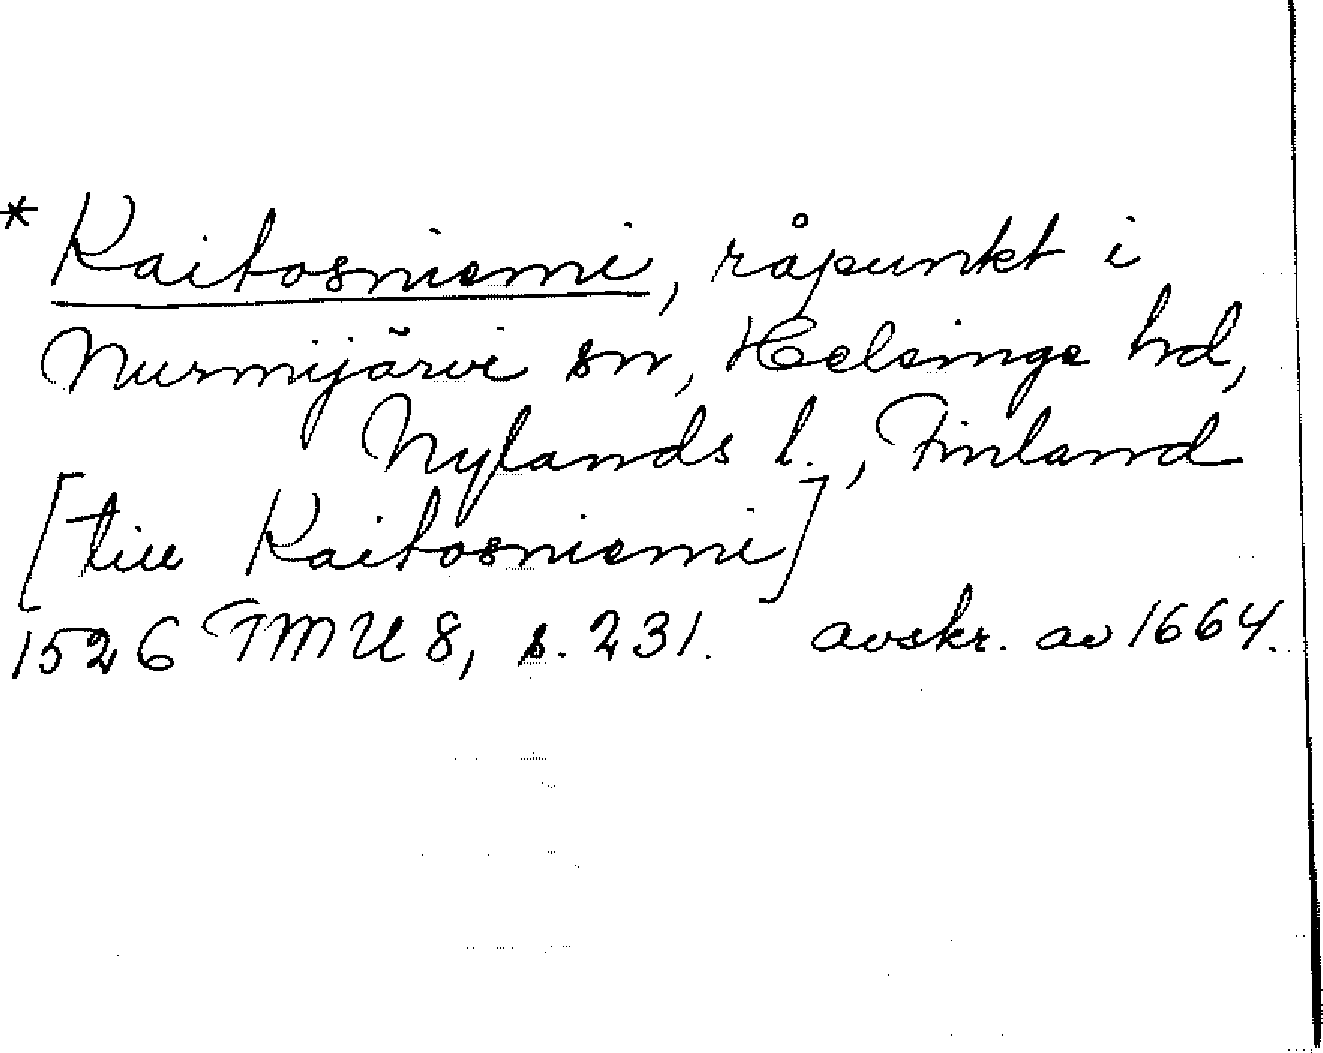 * Kaitosniemi, råpunkt i
Nurmijärvi sn, Helsinge hd,
Nylands l., Finland
[till Kaitosniemi]
1526 FMU 8, s. 231. avskr. av 1664.